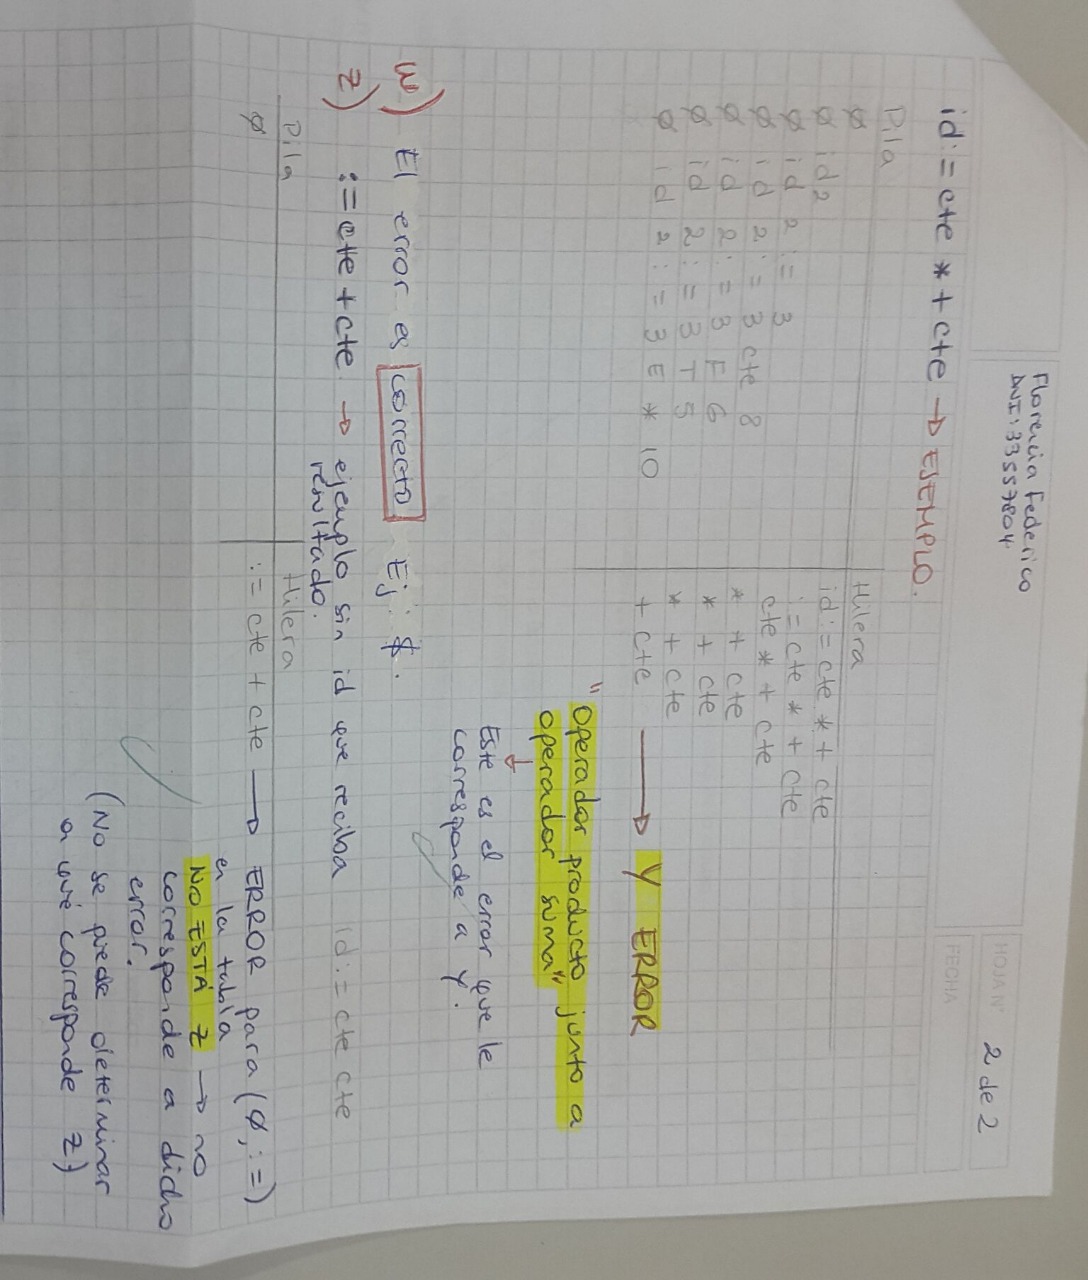 Florencia Federico
DNI: 33557804
HOJA N° 2 de 2
FECHA
id := cte * + cte → EJEMPLO.
Pila | Hilera
ø | id := cte * + cte
ø id 2 | := cte * + cte
ø id 2 := 3 | cte * + cte
ø id 2 := 3 cte 8 | * + cte
ø id 2 := 3 F 6 | * + cte
ø id 2 := 3 T 5 | * + cte
ø id 2 := 3 E * 10 | + cte → Y ERROR
"Operador producto junto a
operador suma"
Este es el error que le
corresponde a Y.
W) El error es correcto Ej: $.
Z) := cte + cte → ejemplo sin id que reciba id := cte cte
resultado.
Pila | Hilera
ø | := cte + cte → ERROR para (ø, :=)
en la tabla
NO ESTÁ Z → no
corresponde a dicho
error.
(No se puede determinar
a qué corresponde Z)